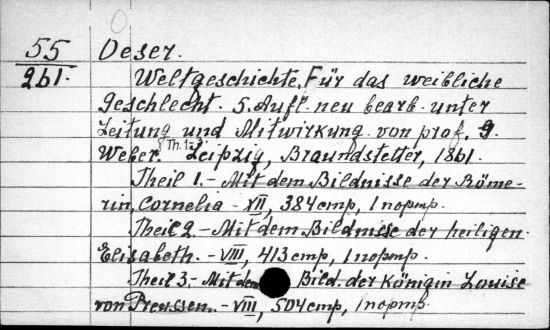 55 Oeser.
261. Weltgeschichte. Für das weibliche
Geschlecht. 5. Aufl. neu bearb. unter
Leitung und Mitwirkung von prof. G.
Weber. Th. 1-3 Leipzig, Brandstetter, 1861.
Theil 1.- Mit dem Bildnisse der Röme-
rin, Cornelia - VII, 384 стр, 1 портр.
Theil 2.- Mit dem Bildnisse der heiligen
Elisabeth. - VIII, 413 стр, 1 портр.
Theil 3.- Mit dem Bild. der Königin Louise
von Preussen. - VIII, 504 стр, 1 портр.